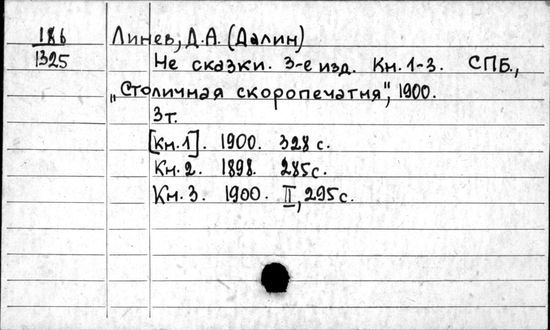 186
1325
Линев, Д.А. (Далин)
Не сказки. 3-е изд. Кн. 1-3. СПБ.,
"Столичная скоропечатня", 1900.
3т.
[Кн. 1]. 1900. 328 с.
Кн. 2. 1898. 285с.
Кн. 3. 1900. II, 295с.